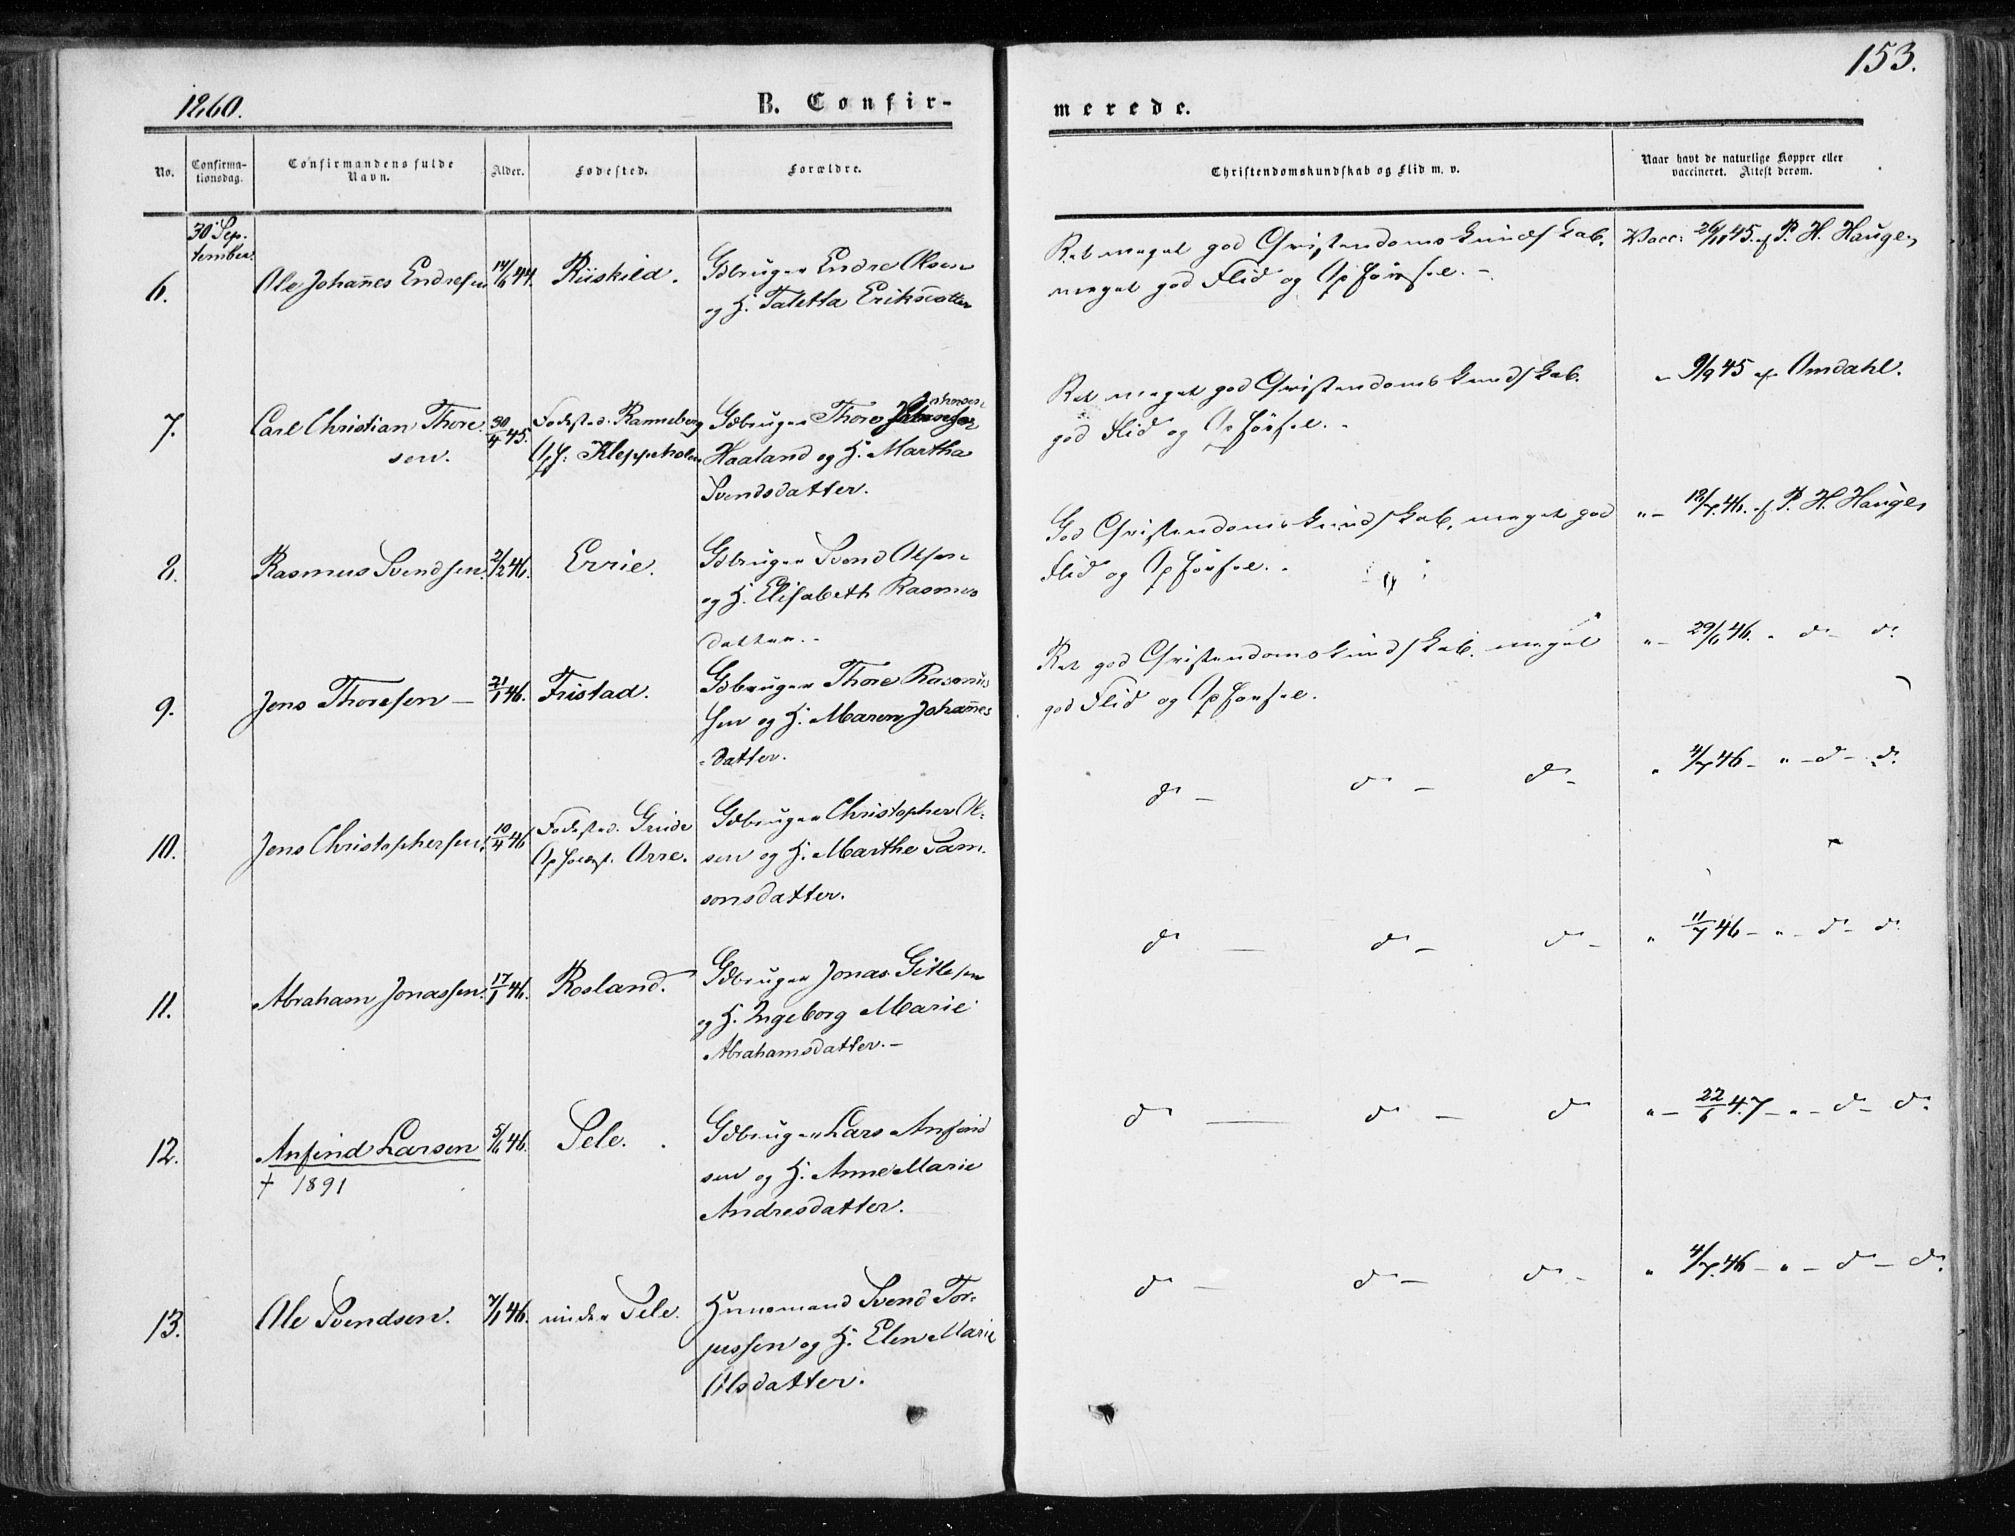 153.
1860.
B. Confir-
merede.
No.
Confirma-
tionsdag.
Confirmandens fulde
Navn.
Alder.
Fødested.
Forældre.
Christendomskundskab og Flid m. v.
Naar havt de naturlige Kopper eller
vaccineret. Attest derom.
30 Sep-
tember.
6.
Ole Johan̄es Endresen
44.
Riiskild.
Gdbruger Endre Olsen
og H. Taletta Eriksdatter
Ret meget god Christendomskundskab,
meget god Flid og Opførsel. -
Vacc: 45. af P. H. Hauge,
7.
Carl Christian Thore
sen.
30/4 45.
Fødested. Ranneberg
Opf: Kleppeholen
Gdbruger Thore
Haaland og H. Martha
Svendsdatter.
Ret meget god Christendomskundskab.
god Flid og Opførsel. -
" 9/9 45 af Omdahl.
8.
Rasmus Svendsen.
2/2 46.
Errie.
Gdbruger Svend Olsen
og H. Elisabeth Rasmus
datter. -
God Christendomskundskab, meget god
Flid og Opførsel. -
" - 18/7 46. af P. H. Hauge,
9.
Jens Thoresen -
21/1 46.
Fristad.
Gdbruger Thore Rasmus
sen og H. Maren Johan̄es
- datter.
Ret god Christendomskundskab. meget
god Flid og Opførsel.
" - 29/6 46. " do - do
10.
Jens Christophersen.
10/4 46
Fødested. Grude
Opfostrst. Orre.
Gdbruger Christopher Ol-
sen og H. Marthe Sam-
sonsdatter.
do - do - do -
" 4/7 46 - " - do - do
11.
Abraham Jonassen.
17/1 46.
Rosland.
Gdbruger Jonas Gitlesen
og H. Ingeborg Marie
Abrahamsdatter. -
do - do - do -
" 11/7 46 - " - do - do
12.
Anfind Larsen
† 1891
5/6 46.
Sele.
Gdbruger Lars Anfind
sen og H. Anne Marie
Andresdatter.
do - do - do
" - 22/6 47 - " - do - do
13.
Ole Svendsen.
7/1 46.
under Sele.
Huusmand Svend Tor-
jussen og H. Elen Marie
Olsdatter.
do - do - do -
" 4/7. 46 - " - do - do